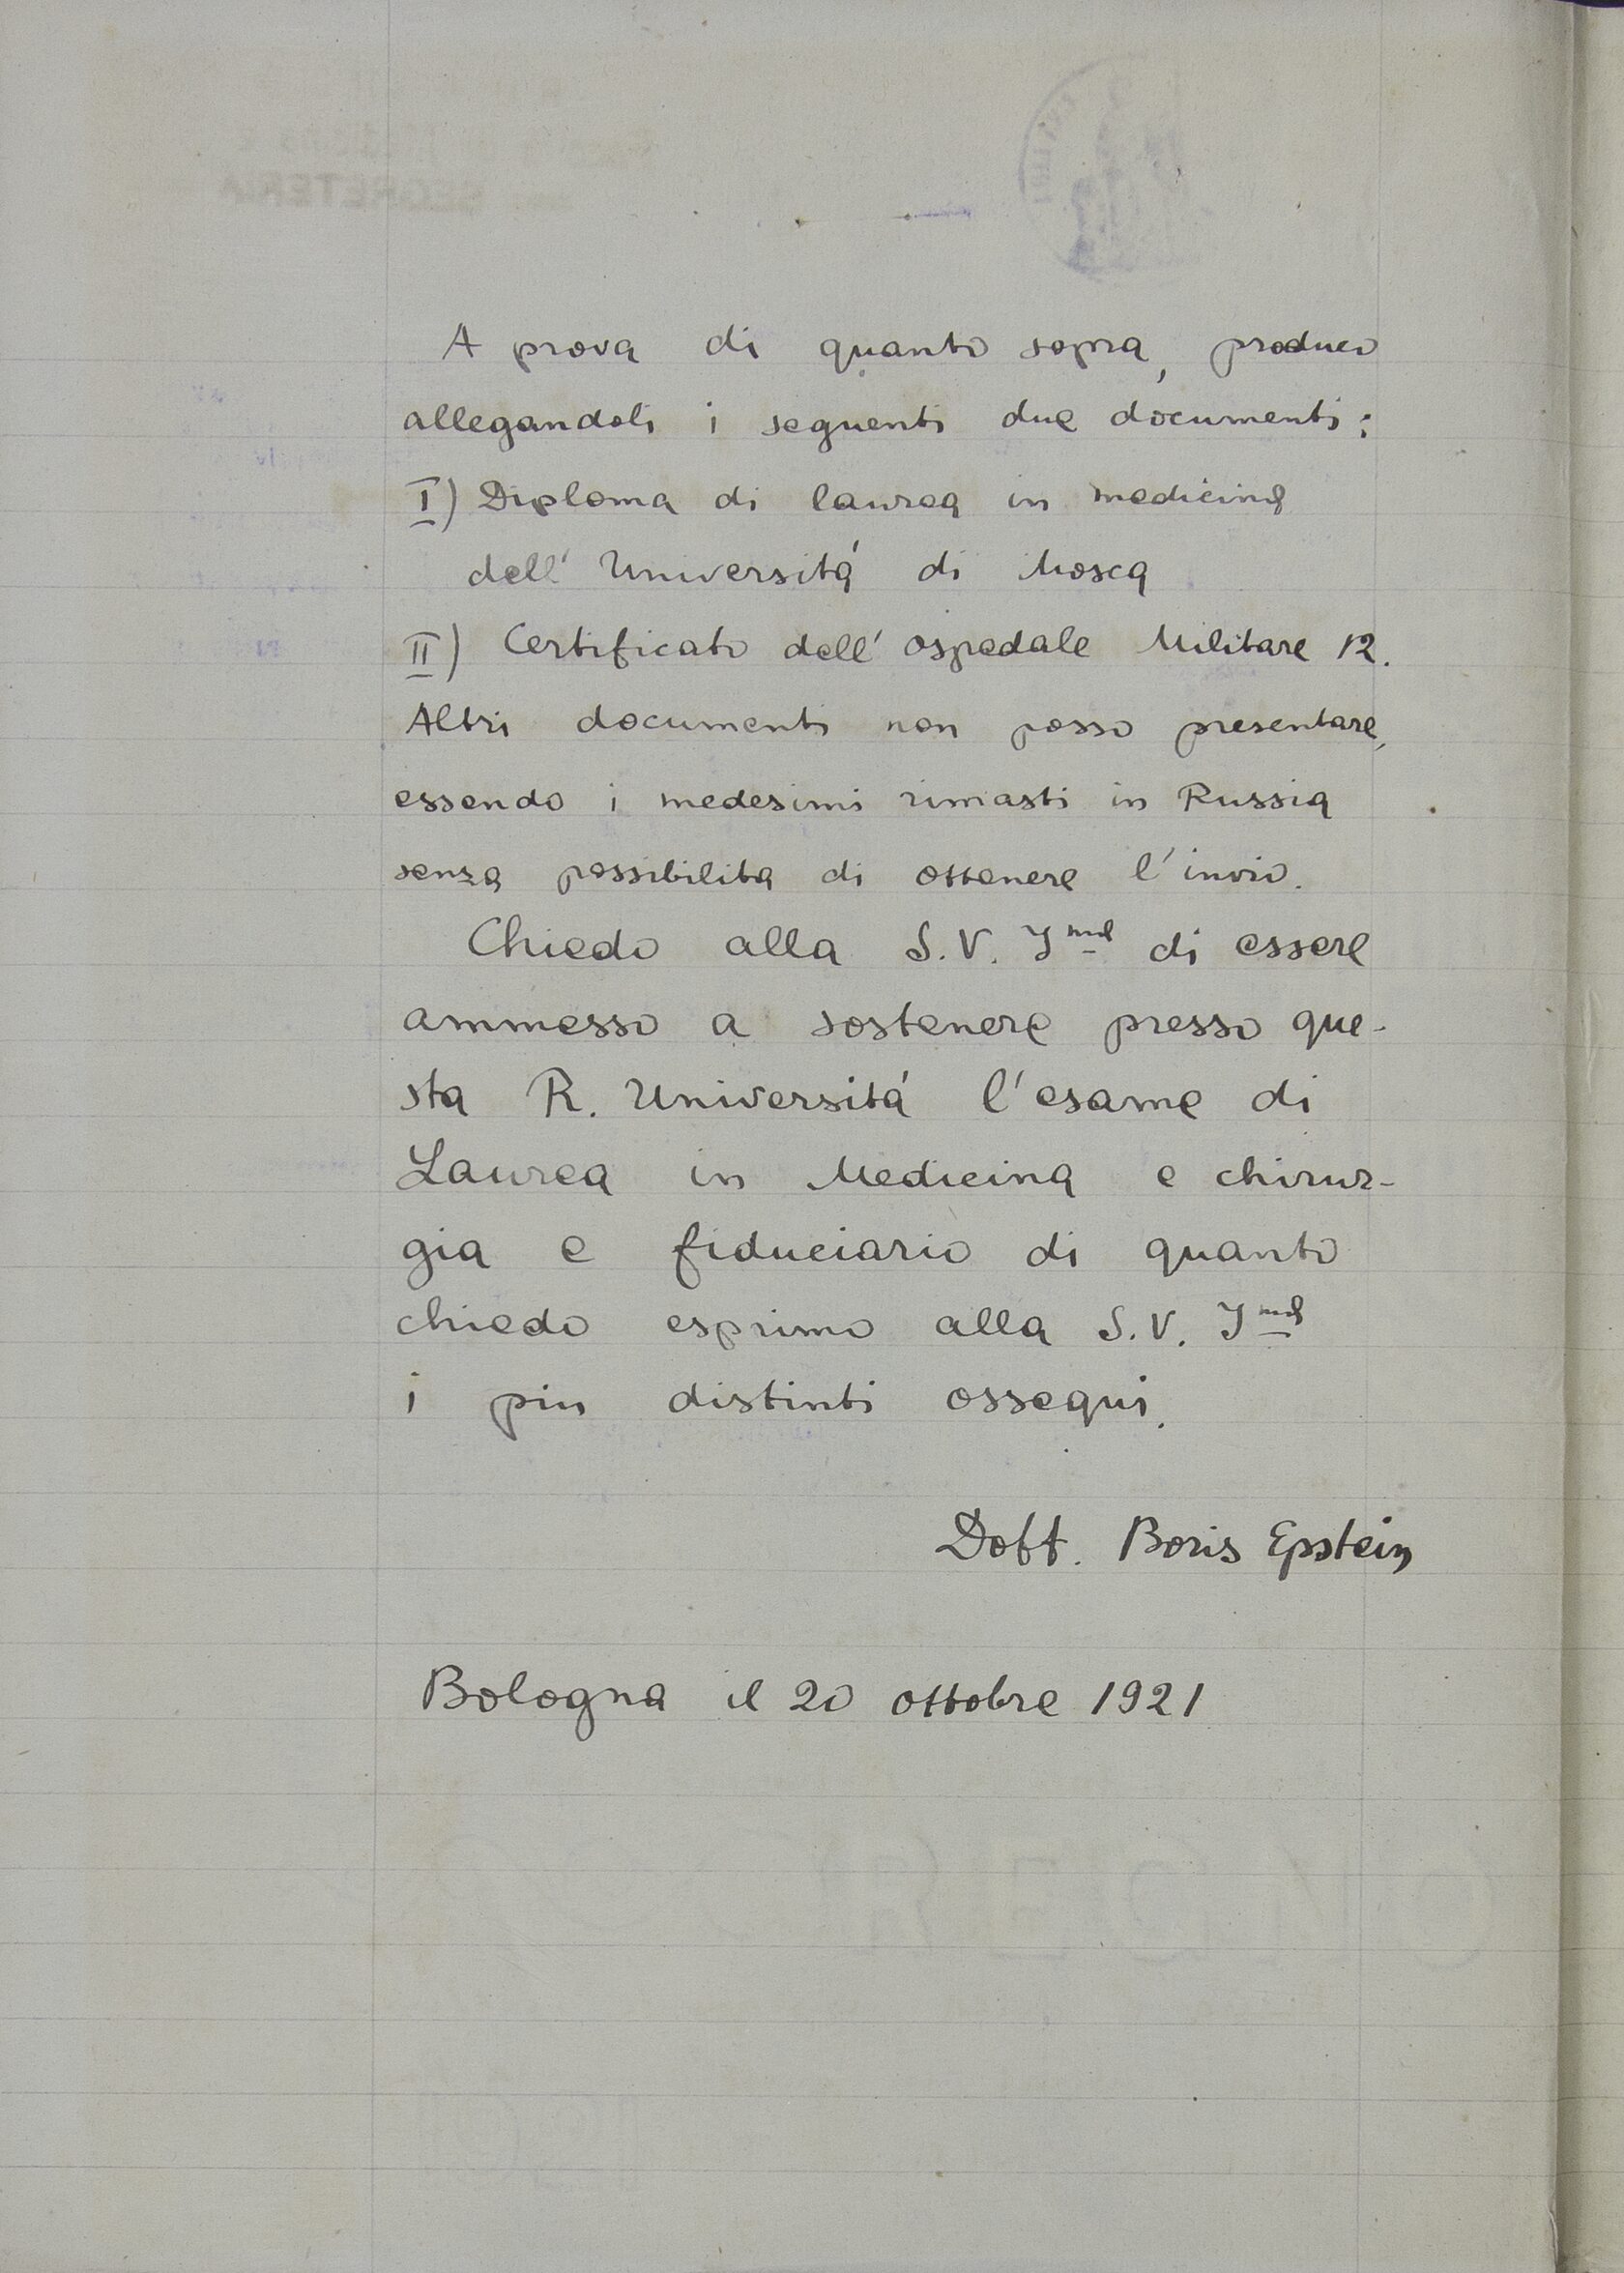 A prova di quanto sopra, produco
allegandoli i seguenti due documenti:
I) Diploma di laurea in medicina
dell' Universitá di Mosca
II) Certificato dell' ospedale Militare 12.
Altri documenti non posso presentare,
essendo i medesimi rimasti in Russia
senza possibilita di ottenere l'invio.
Chiedo alla S.V. Ima di essere
ammesso a sostenere presso que-
sta R. Universitá l'esame di
Laurea in Medicina e chirur-
gia e fiduciario di quanto
chiedo esprimo alla S.V. Ima
i piu distinti ossequi.
Dott. Boris Epstein
Bologna il 20 ottobre 1921
SEGRETERIA